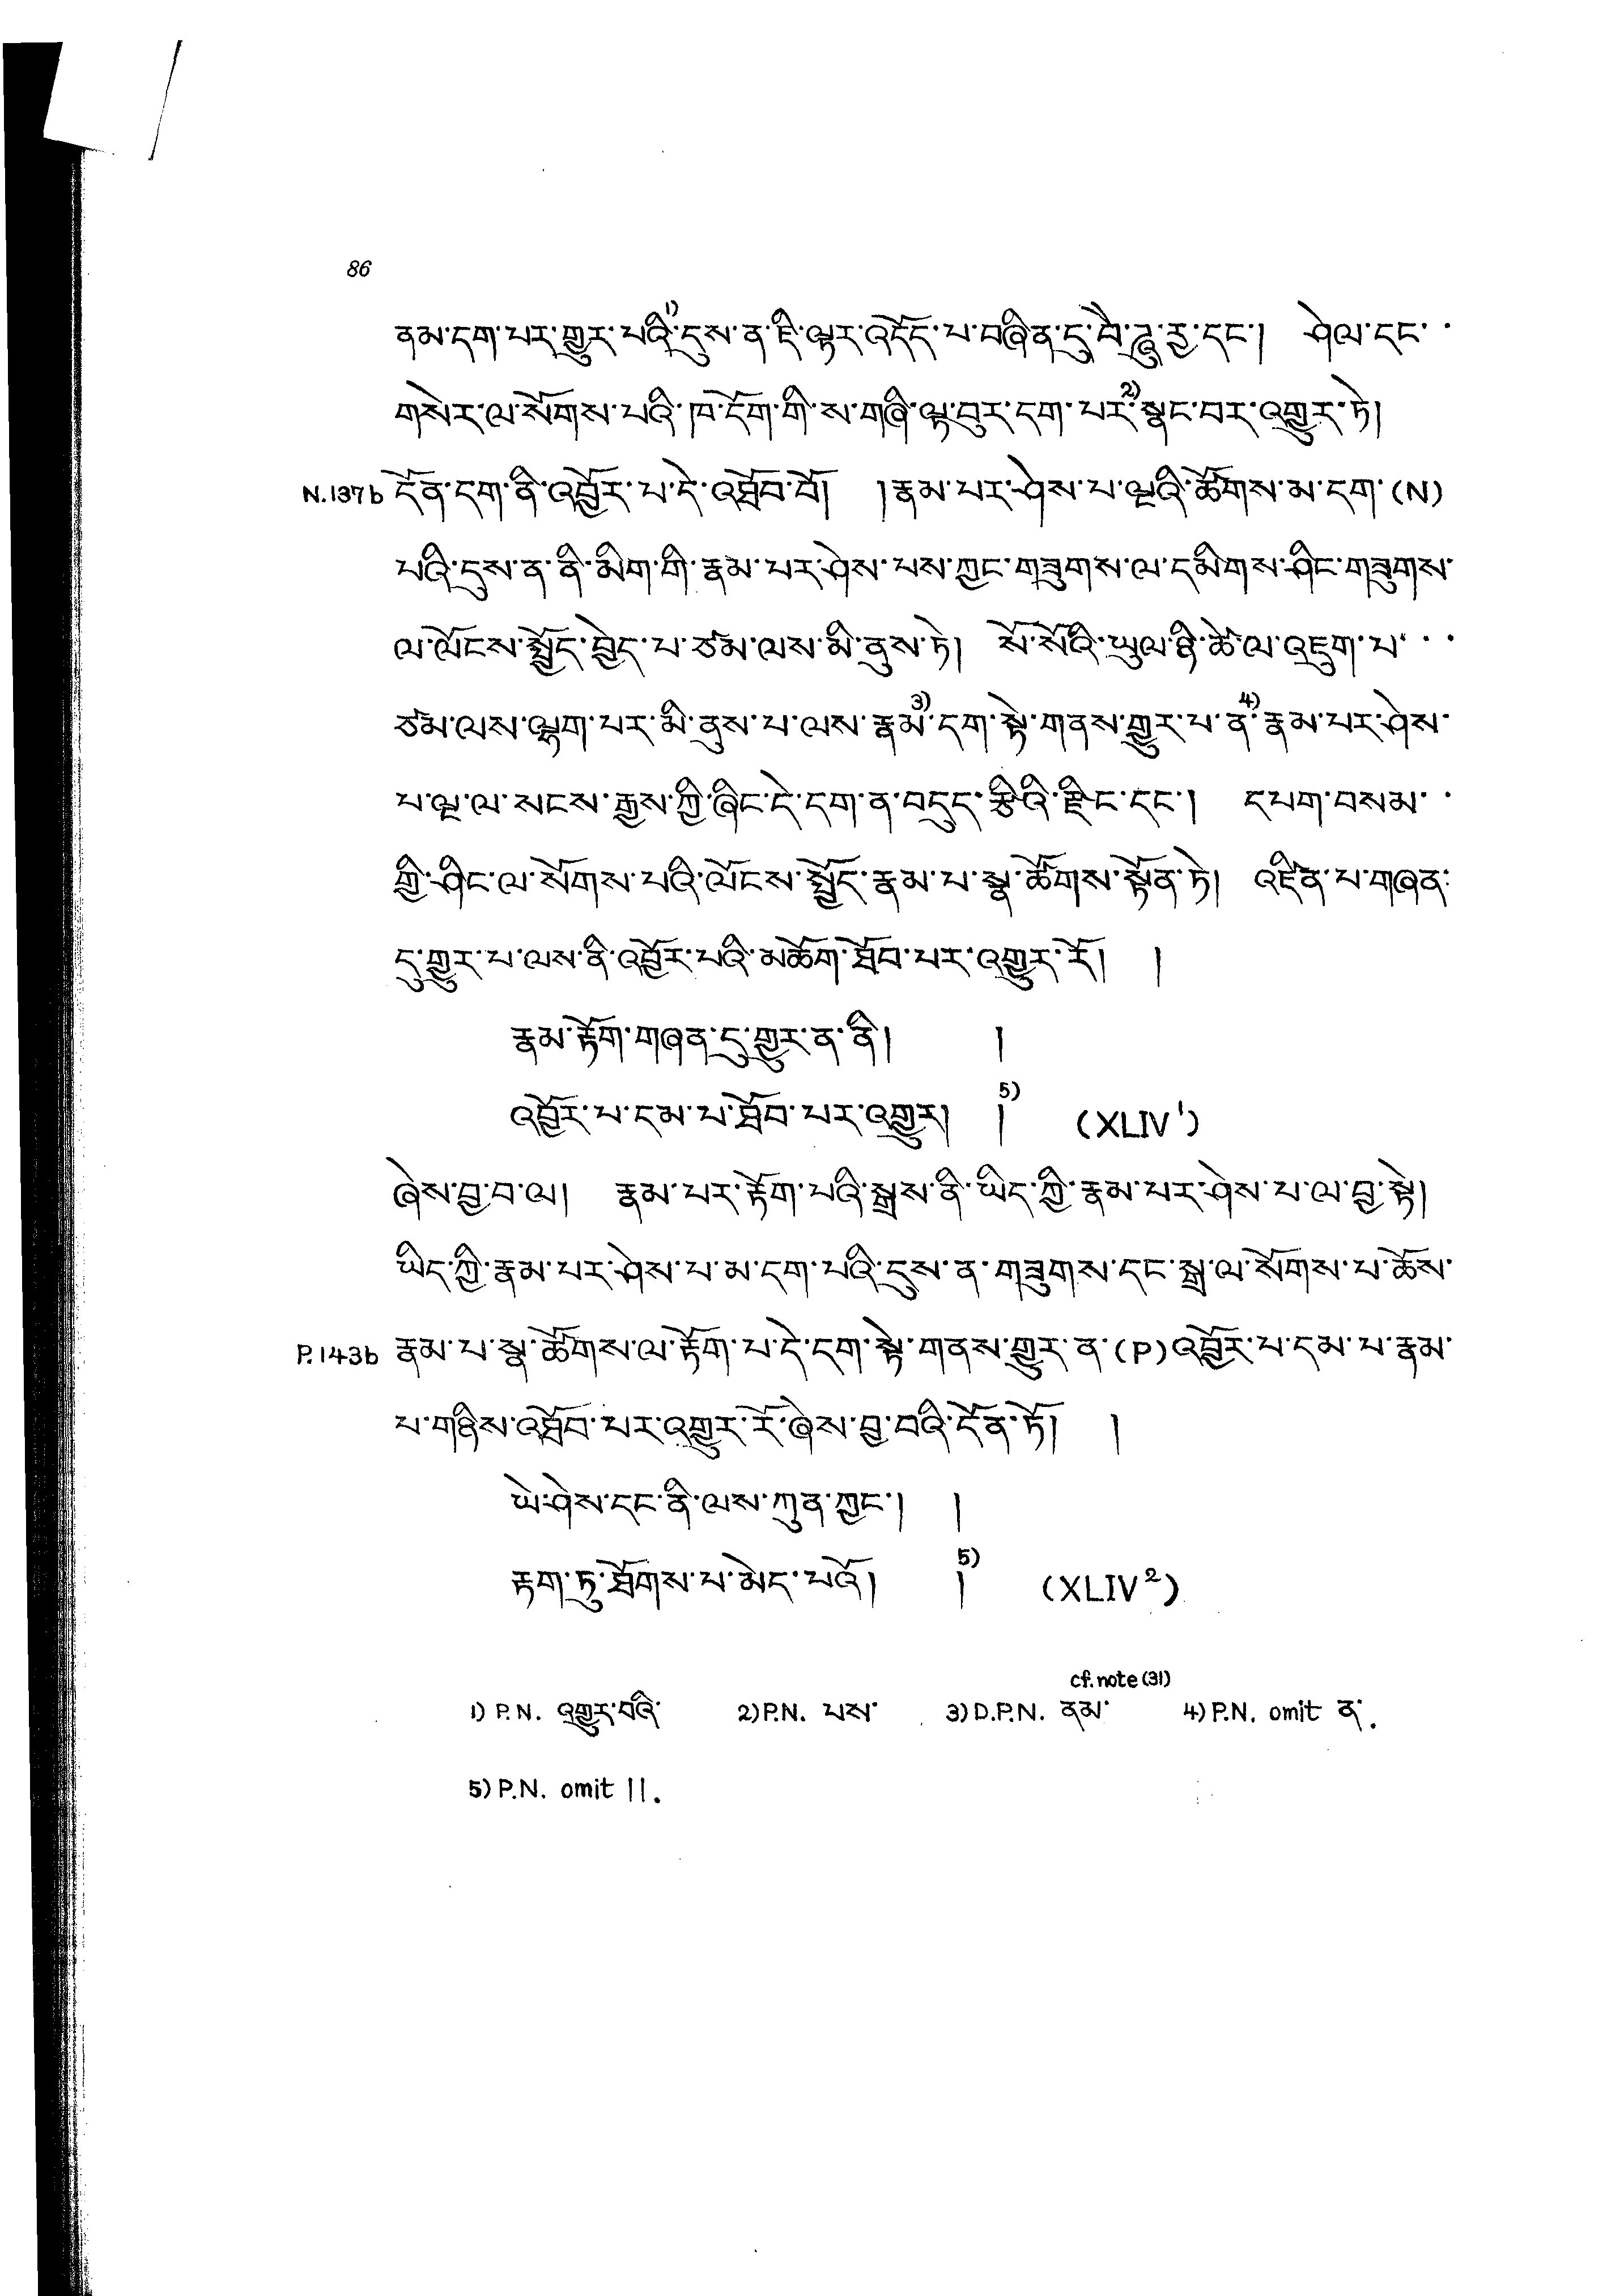 86
ནམ་དག་པར་གྱུར་པའི་1)དུས་ན་ཇི་ལྟར་འདོད་པ་བཞིན་དུ་བེ་ཌཱུ་རྱ་དང་། ཤེལ་དང་་
གསེར་ལ་སོགས་པའི་ཁ་དོག་གི་ས་གཞི་ལྟ་བུར་དག་པར་2)སྣང་བར་འགྱུར་ཏེ།
N.137b དོན་དག་ནི་འབྱོར་པ་དེ་འཐོབ་བོ། །རྣམ་པར་ཤེས་པ་ལྔའི་ཚོགས་མ་དག་(N)
པའི་དུས་ན་ནི་མིག་གི་རྣམ་པར་ཤེས་པས་ཀྱང་གཟུགས་ལ་དམིགས་ཤིང་གཟུགས་
ལ་ལོངས་སྤྱོད་བྱེད་པ་ཙམ་ལས་མི་ནུས་ཏེ། སོ་སོའི་ཡུལ་ཉི་ཚེ་ལ་འཇུག་པ་་་
ཙམ་ལས་ལྷག་པར་མི་ནུས་པ་ལས་རྣམ་3)དག་སྟེ་གནས་གྱུར་པ་ན་4)རྣམ་པར་ཤེས་
པ་ལྔ་ལ་སངས་རྒྱས་ཀྱི་ཞིང་དེ་དག་ན་བདུད་རྩིའི་རྫིང་དང་། དཔག་བསམ་་
གྱི་ཤིང་ལ་སོགས་པའི་ལོངས་སྤྱོད་རྣམ་པ་སྣ་ཚོགས་སྟོན་ཏེ། འཛིན་པ་གཞན་
དུ་གྱུར་པ་ལས་ནི་འབྱོར་པའི་མཆོག་ཐོབ་པར་འགྱུར་རོ། །
རྣམ་རྟོག་གཞན་དུ་གྱུར་ན་ནི། །
འབྱོར་པ་དམ་པ་ཐོབ་པར་འགྱུར། །5) (XLIV¹)
ཞེས་བྱ་བ་ལ། རྣམ་པར་རྟོག་པའི་སྒྲས་ནི་ཡིད་ཀྱི་རྣམ་པར་ཤེས་པ་ལ་བྱ་སྟེ།
ཡིད་ཀྱི་རྣམ་པར་ཤེས་པ་མ་དག་པའི་དུས་ན་གཟུགས་དང་སྒྲ་ལ་སོགས་པ་ཆོས་
P.143b རྣམ་པ་སྣ་ཚོགས་ལ་རྟོག་པ་དེ་དག་སྟེ་གནས་གྱུར་ན་(P)འབྱོར་པ་དམ་པ་རྣམ་
པ་གཉིས་འཐོབ་པར་འགྱུར་རོ་ཞེས་བྱ་བའི་དོན་ཏོ། །
ཡེ་ཤེས་དང་ནི་ལས་ཀུན་ཀྱང་། །
རྟག་ཏུ་ཐོགས་པ་མེད་པའོ། །5) (XLIV²)
cf. note (31)
1) P.N. འགྱུར་བའི་ 2) P.N. པས་ 3) D.P.N. ནམ་ 4) P.N. omit ན་.
5) P.N. omit །།.